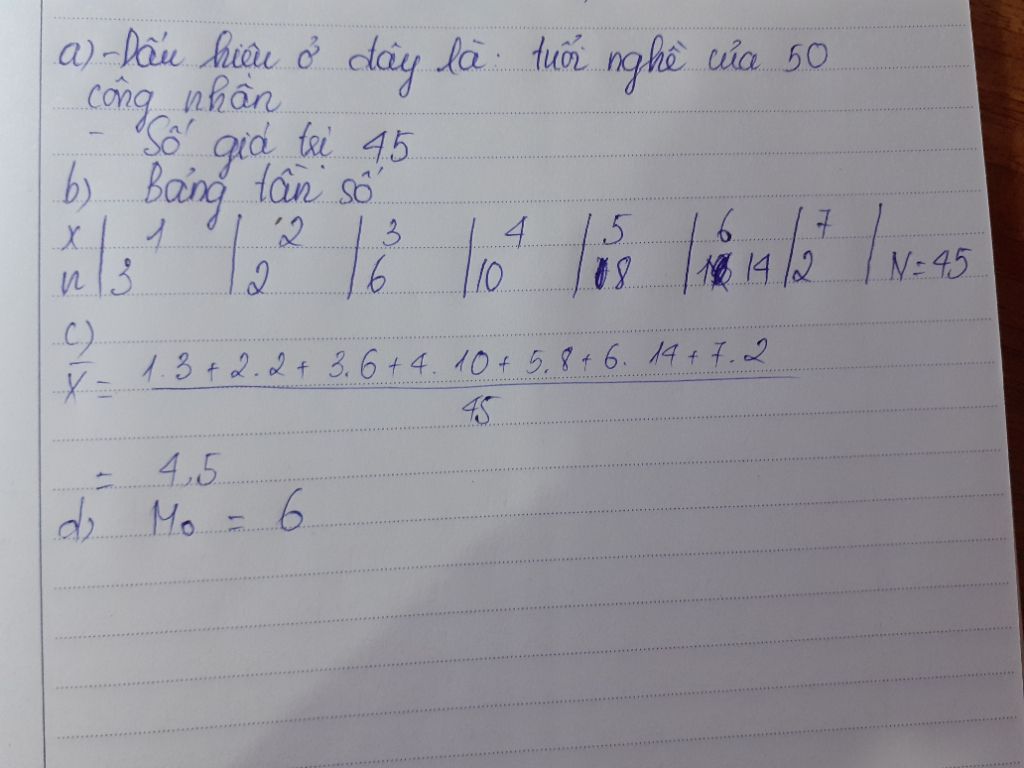 a) - Dấu hiệu ở đây là: tuổi nghề của 50
công nhân
- Số giá trị 45
b) Bảng tần số
x | 1 | 2 | 3 | 4 | 5 | 6 | 7 |
n | 3 | 2 | 6 | 10 | 8 | 14 | 2 | N = 45
c)
X̄ = 1.3 + 2.2 + 3.6 + 4.10 + 5.8 + 6.14 + 7.2
45
= 4,5
d) Mo = 6